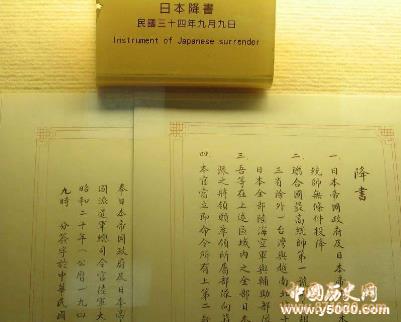 日本降書
民國三十四年九月九日
Instrument of Japanese surrender
降書
一 日本帝國政府及日本
統帥無條件投降
二 聯合國最高統帥第一號
三省除外 台灣與越南北
日本全部陸海空軍與輔助部隊
三 吾等在上述區域內之全部日本
派之將領願率領所屬部隊向
四 本官當立即命令所有上第二
奉日本帝國政府及日本
國派遣軍總司令官陸軍大
昭和二十年 公曆一九四
九時 分簽字於中華民國
中国历史网
www.y5000.com